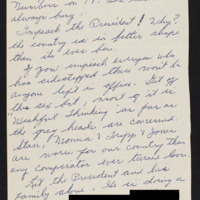 Numbers on TV.
always busy.
Impeach the President! Why?
the country is in better shape
than its ever been.
If you impeach everyone who
has sidestepped there won't be
anyone left in office. Get off
this sex bit, most of it is
"Wishful thinking as far as
the grey heads are concerned.
Starr, Monica & Tripp & Jones
are worse for our country than
any conspirator ever turned loose.
Let the President and his
family alone. He is doing a